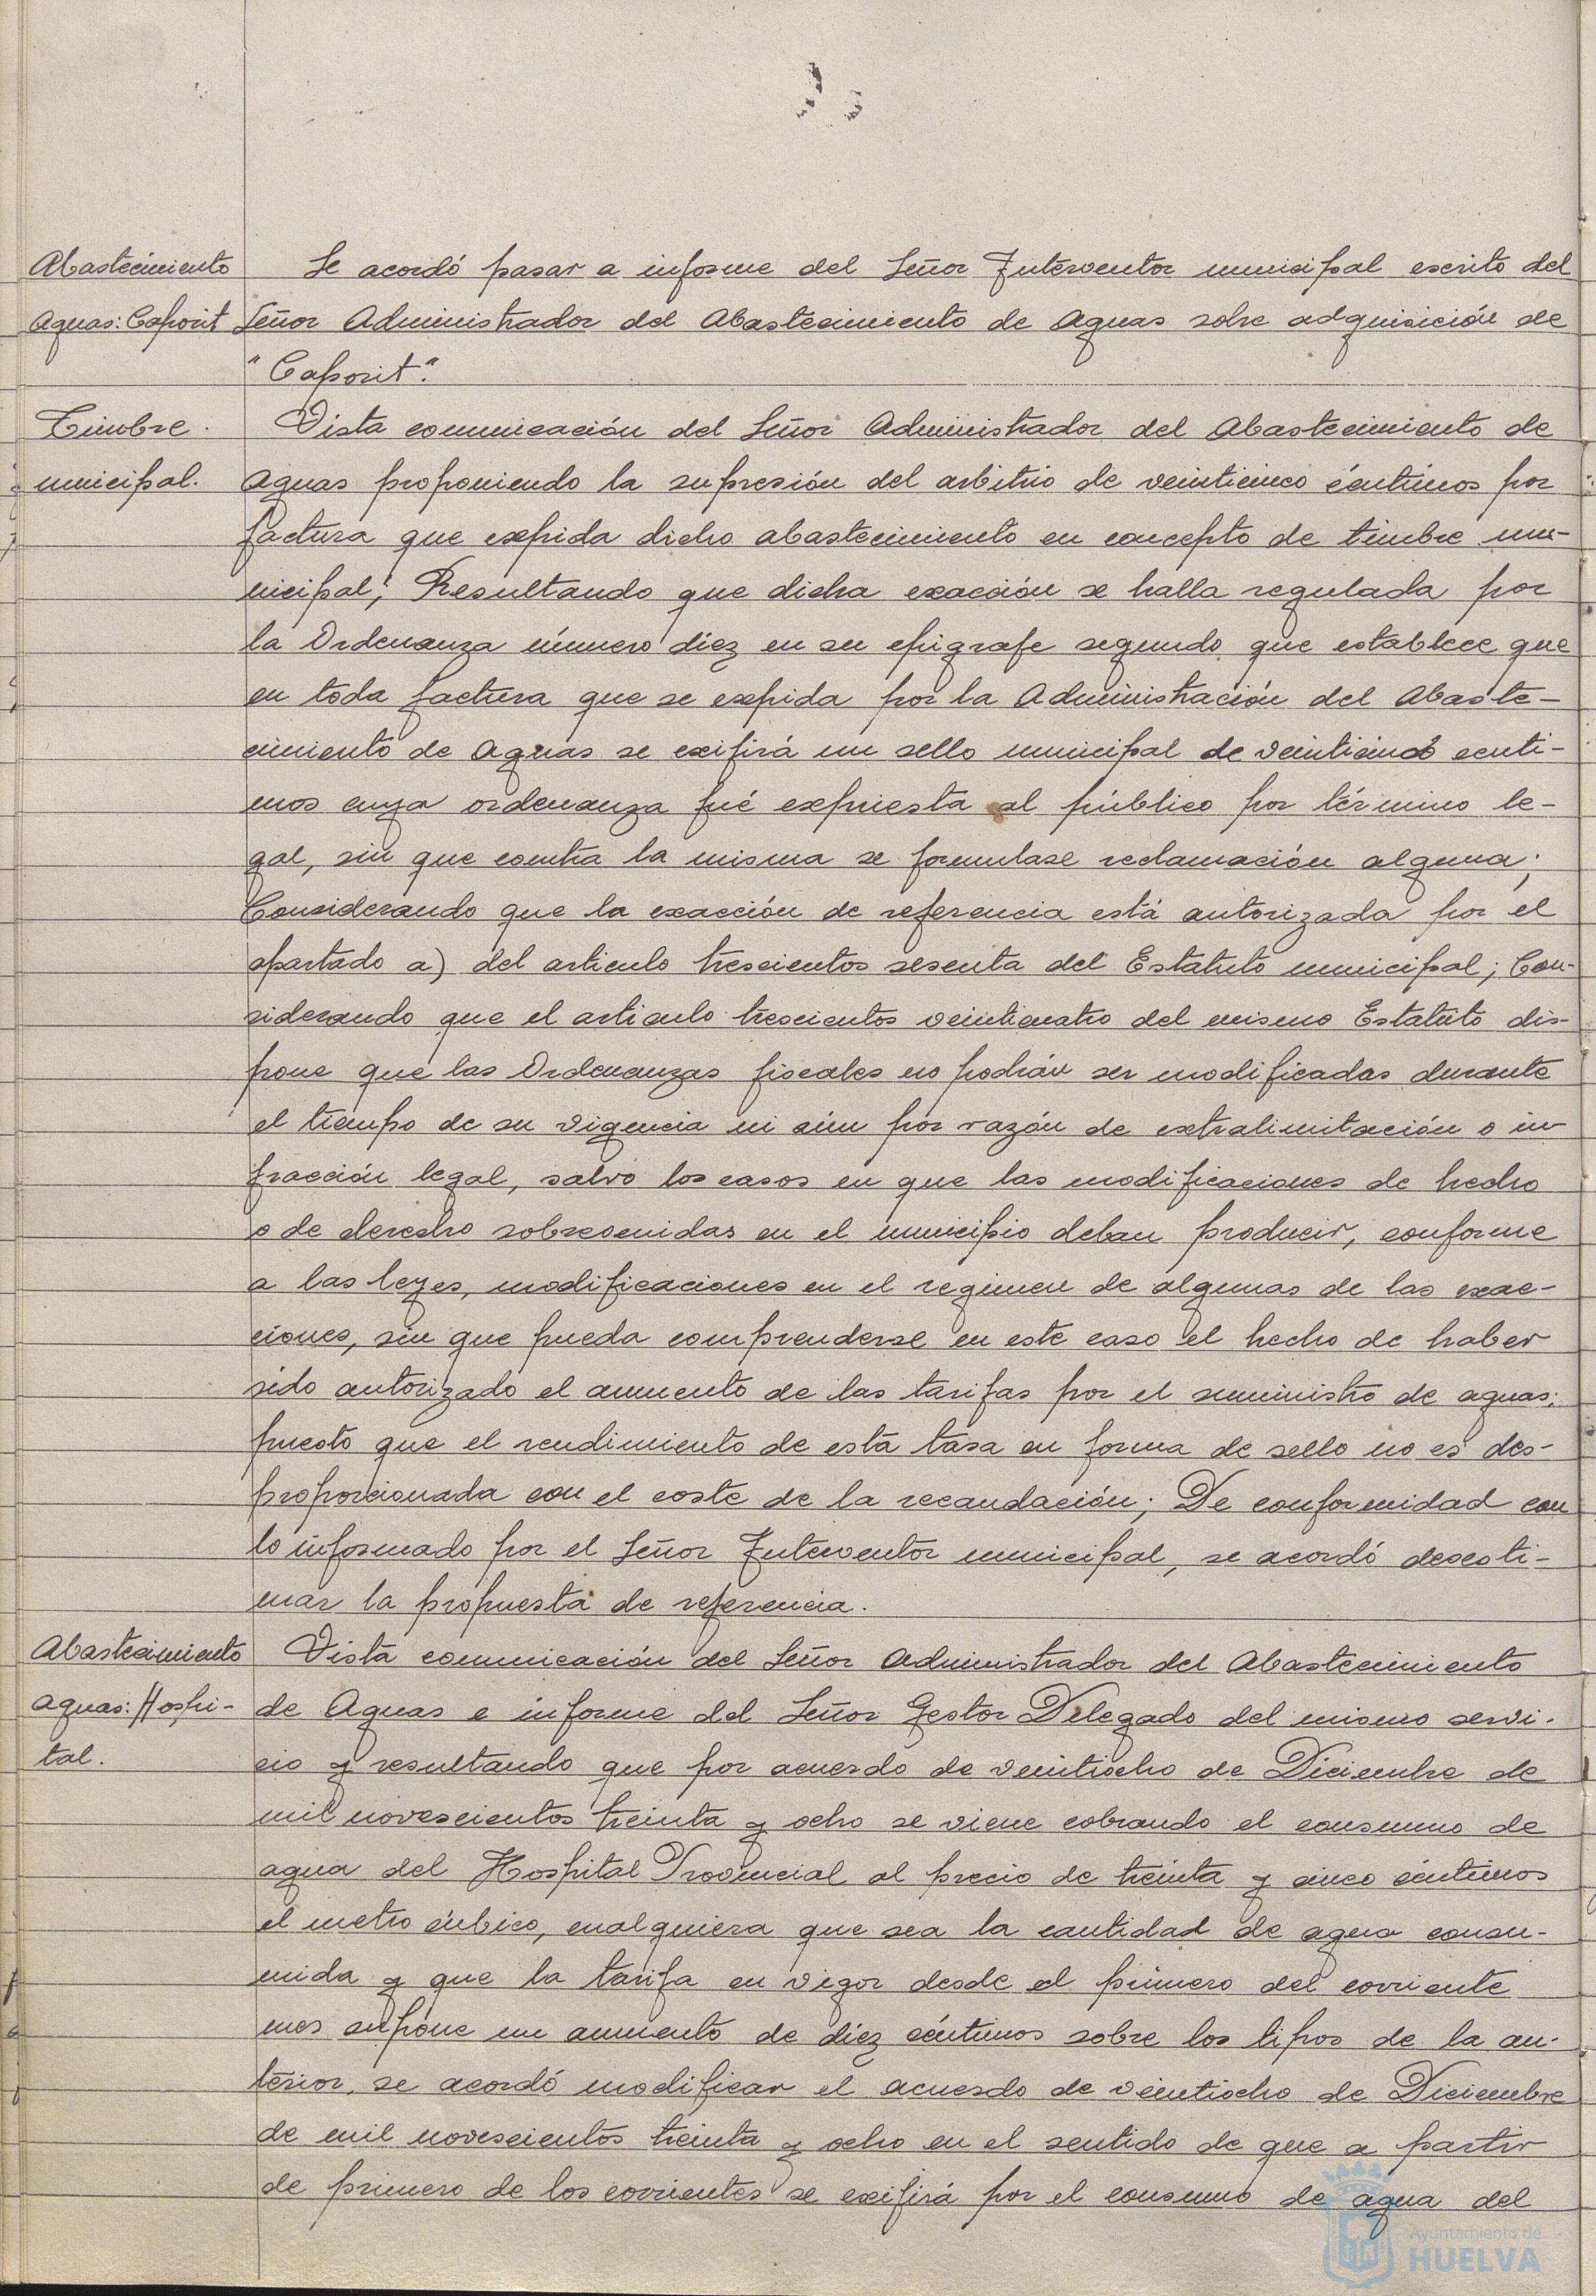 Abastecimiento
Aguas: Caporit
Se acordó pasar a informe del Señor Interventor municipal escrito del
Señor Administrador del Abastecimiento de Aguas sobre adquisición de
"Caporit".
Timbre
municipal.
Vista comunicación del Señor Administrador del Abastecimiento de
Aguas proponiendo la supresión del arbitrio de veinticinco céntimos por
factura que expida dicho abastecimiento en concepto de timbre mu-
nicipal; Resultando que dicha exacción se halla regulada por
la Ordenanza número diez en su epigrafe segundo que establece que
en toda factura que se expida por la Administración del Abaste-
cimiento de Aguas se exijirá un sello municipal de veinticinco centi-
mos cuya ordenanza fué expuesta al público por término le-
gal, sin que contra la misma se formulase reclamación alguna;
Considerando que la exacción de referencia está autorizada por el
apartado a) del articulo trescientos sesenta del Estatuto municipal; Con-
siderando que el articulo trescientos veinticuatro del mismo Estatuto dis-
pone que las Ordenanzas fiscales no podrán ser modificadas durante
el tiempo de su vigencia ni aún por razón de extralimitación o in
fracción legal, salvo los casos en que las modificaciones de hecho
o de derecho sobrevenidas en el municipio deban producir, conforme
a las leyes, modificaciones en el regimen de algunas de las exac-
ciones, sin que pueda comprenderse en este caso el hecho de haber
sido autorizado el aumento de las tarifas por el suministro de aguas;
puesto que el rendimiento de esta tasa en forma de sello no es des-
proporcionada con el coste de la recaudación; De conformidad con
lo informado por el Señor Interventor municipal, se acordó desesti-
mar la propuesta de referencia.
Abastecimiento
aguas: Hospi-
tal.
Vista comunicación del Señor Administrador del Abastecimiento
de Aguas e informe del Señor Gestor Delegado del mismo servi-
cio y resultando que por acuerdo de veintiocho de Diciembre de
mil novescientos treinta y ocho se viene cobrando el consumo de
agua del Hospital Provincial al precio de treinta y cinco céntimos
el metro cúbico, cualquiera que sea la cantidad de agua consu-
mida y que la tarifa en vigor desde el primero del corriente
mes supone un aumento de diez céntimos sobre los tipos de la an-
terior, se acordó modificar el acuerdo de veintiocho de Diciembre
de mil novescientos treinta y ocho en el sentido de que a partir
de primero de los corrientes se exijirá por el consumo de agua del
Ayuntamiento de
HUELVA